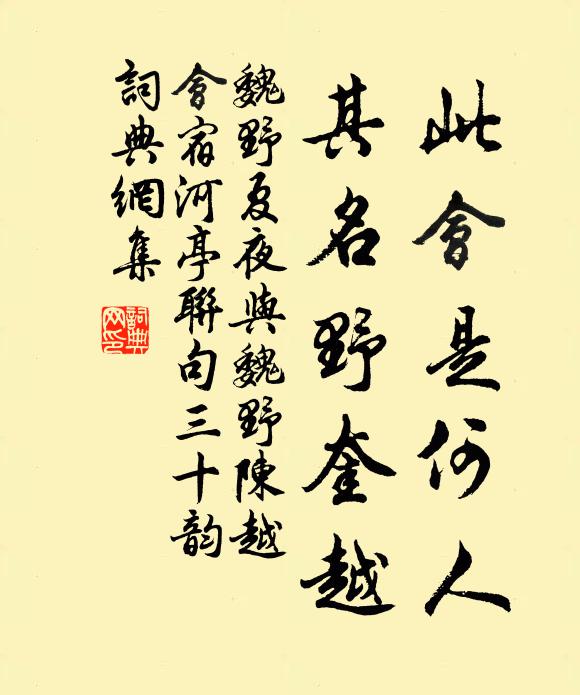 此會是何人
其名野奎越
魏野夏夜與魏野陳越
會宿河亭聯句三十韵
詞典網集
詞典网印